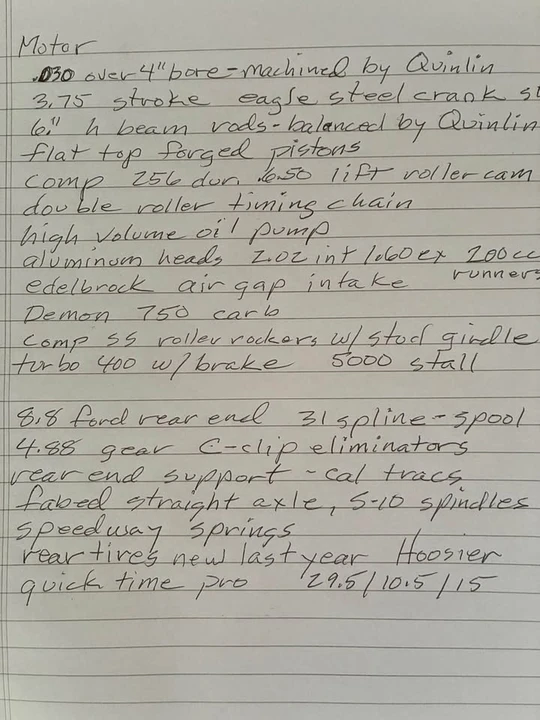 Motor
.030 over 4" bore - machined by Quinlin
3.75 stroke eagle steel crank
6" h beam rods - balanced by Quinlin
flat top forged pistons
comp 256 dur. .650 lift roller cam
double roller timing chain
high volume oil pump
aluminum heads 2.02 int 1.60 ex 200cc
runners
edelbrock air gap intake
Demon 750 carb
comp SS roller rockers w/ stud girdle
turbo 400 w/ brake 5000 stall
8.8 ford rear end 31 spline - spool
4.88 gear C-clip eliminators
rear end support - cal tracs
fabed straight axle, S-10 spindles
speedway springs
rear tires new last year Hoosier
quick time pro 29.5/10.5/15